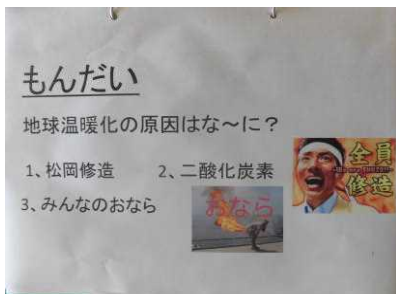 もんだい
地球温暖化の原因はな～に？
1、松岡修造　2、二酸化炭素
全員
修造
3、みんなのおなら
おなら